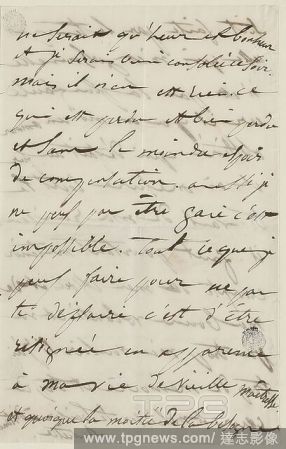 ne serait qu'heur et bonheur
et je serais ainsi consolée ce soir
mais il n'en est rien. ce
qui est perdu est bien perdu
et sans le moindre espoir
de compensation. aussi je
ne puis pas être gaie c'est
impossible. Tout ce que je
puis faire pour ne pas
te déplaire c'est d'être
résignée en apparence
à ma vie de vieille
et quoique la moitié de la
TPG
www.tpgnews.com / 達志影像